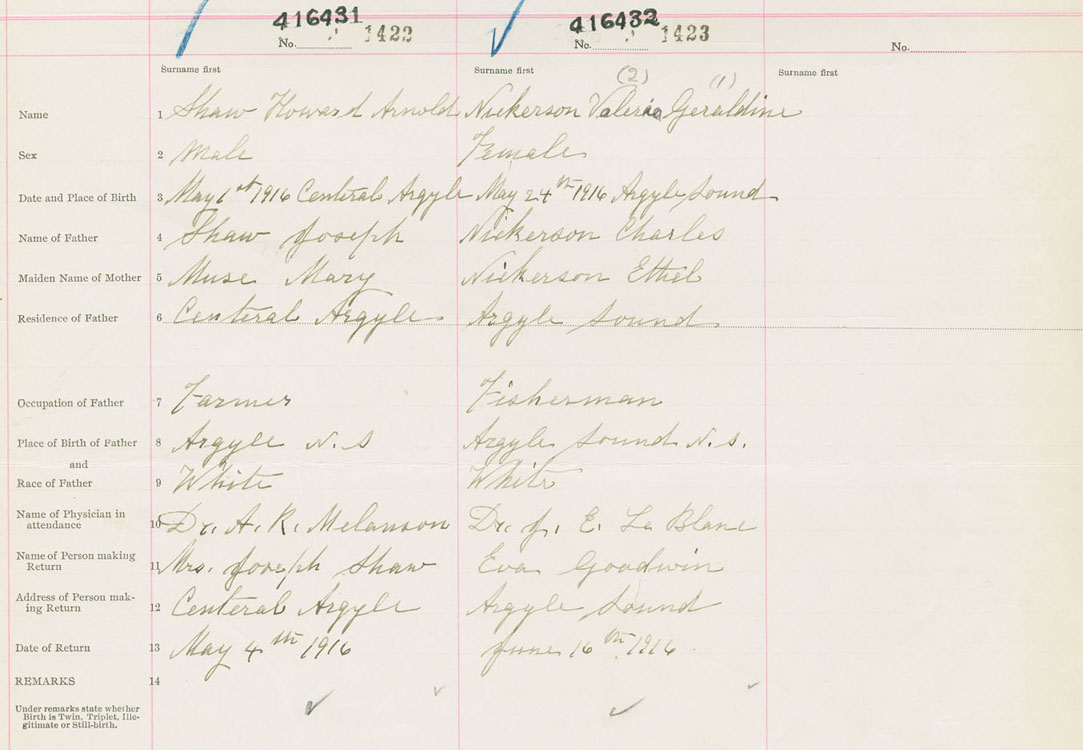 416431 416432
No. 1422 No. 1423 No.
Surname first Surname first Surname first
(2) (1)
Name 1 Shaw Howard Arnold Nickerson Valeria Geraldine
Sex 2 Male Female
Date and Place of Birth 3 May 1st 1916 Centeral Argyle May 24th 1916 Argyle Sound
Name of Father 4 Shaw Joseph Nickerson Charles
Maiden Name of Mother 5 Muse Mary Nickerson Ethel
Residence of Father 6 Centeral Argyle Argyle Sound
Occupation of Father 7 Farmer Fisherman
Place of Birth of Father 8 Argyle N.S Argyle Sound N.S.
and
Race of Father 9 White White
Name of Physician in
attendance 10 Dr. A. R. Melanson Dr. J. E. La Blanc
Name of Person making
Return 11 Mrs. Joseph Shaw Eva Goodwin
Address of Person mak-
ing Return 12 Centeral Argyle Argyle Sound
Date of Return 13 May 4th 1916 June 16th 1916
REMARKS 14
Under remarks state whether
Birth is Twin, Triplet, Ille-
gitimate or Still-birth.